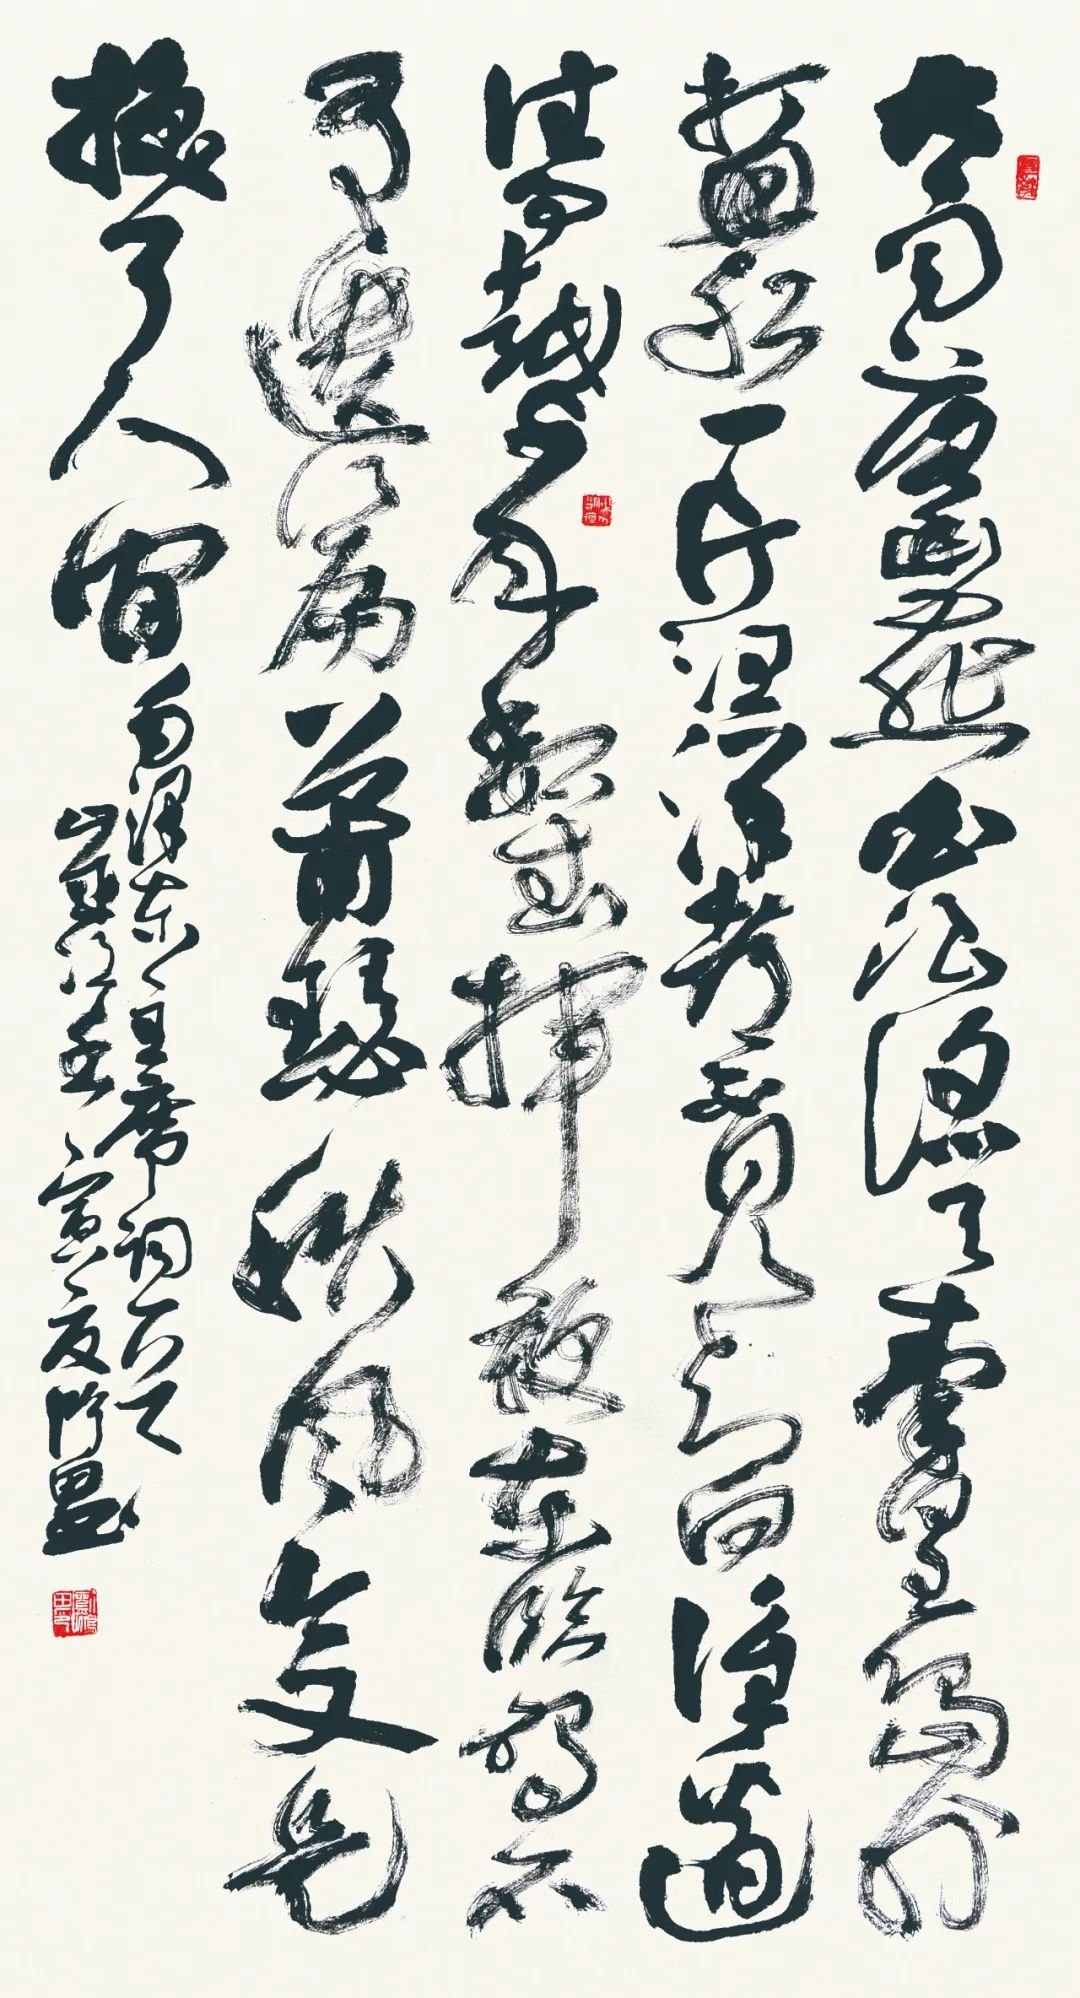 大雨落幽燕白浪滔天秦皇島外
打魚船一片汪洋都不見知向誰邊
往事越千年魏武揮鞭東臨碣石
有遺篇蕭瑟秋風今又是
換了人間
毛澤東主席詞
寅夏